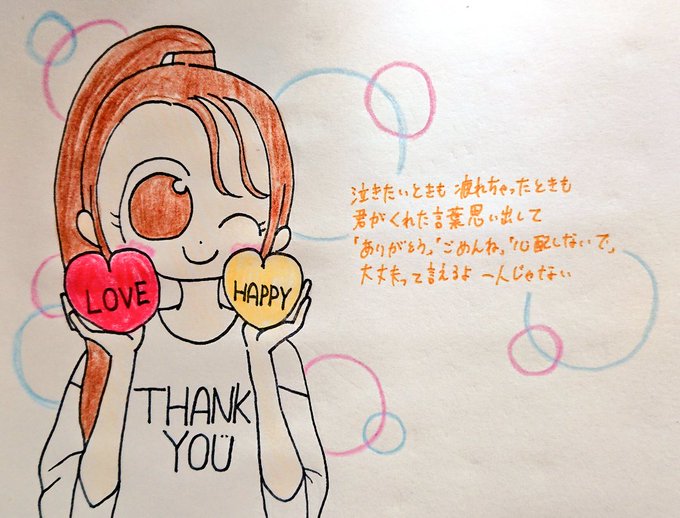 LOVE
HAPPY
THANK
YOU
泣きたいときも 疲れちゃったときも
君がくれた言葉思い出して
「ありがとう」「ごめんね」「心配しないで」
大丈夫って言えるよ 一人じゃない